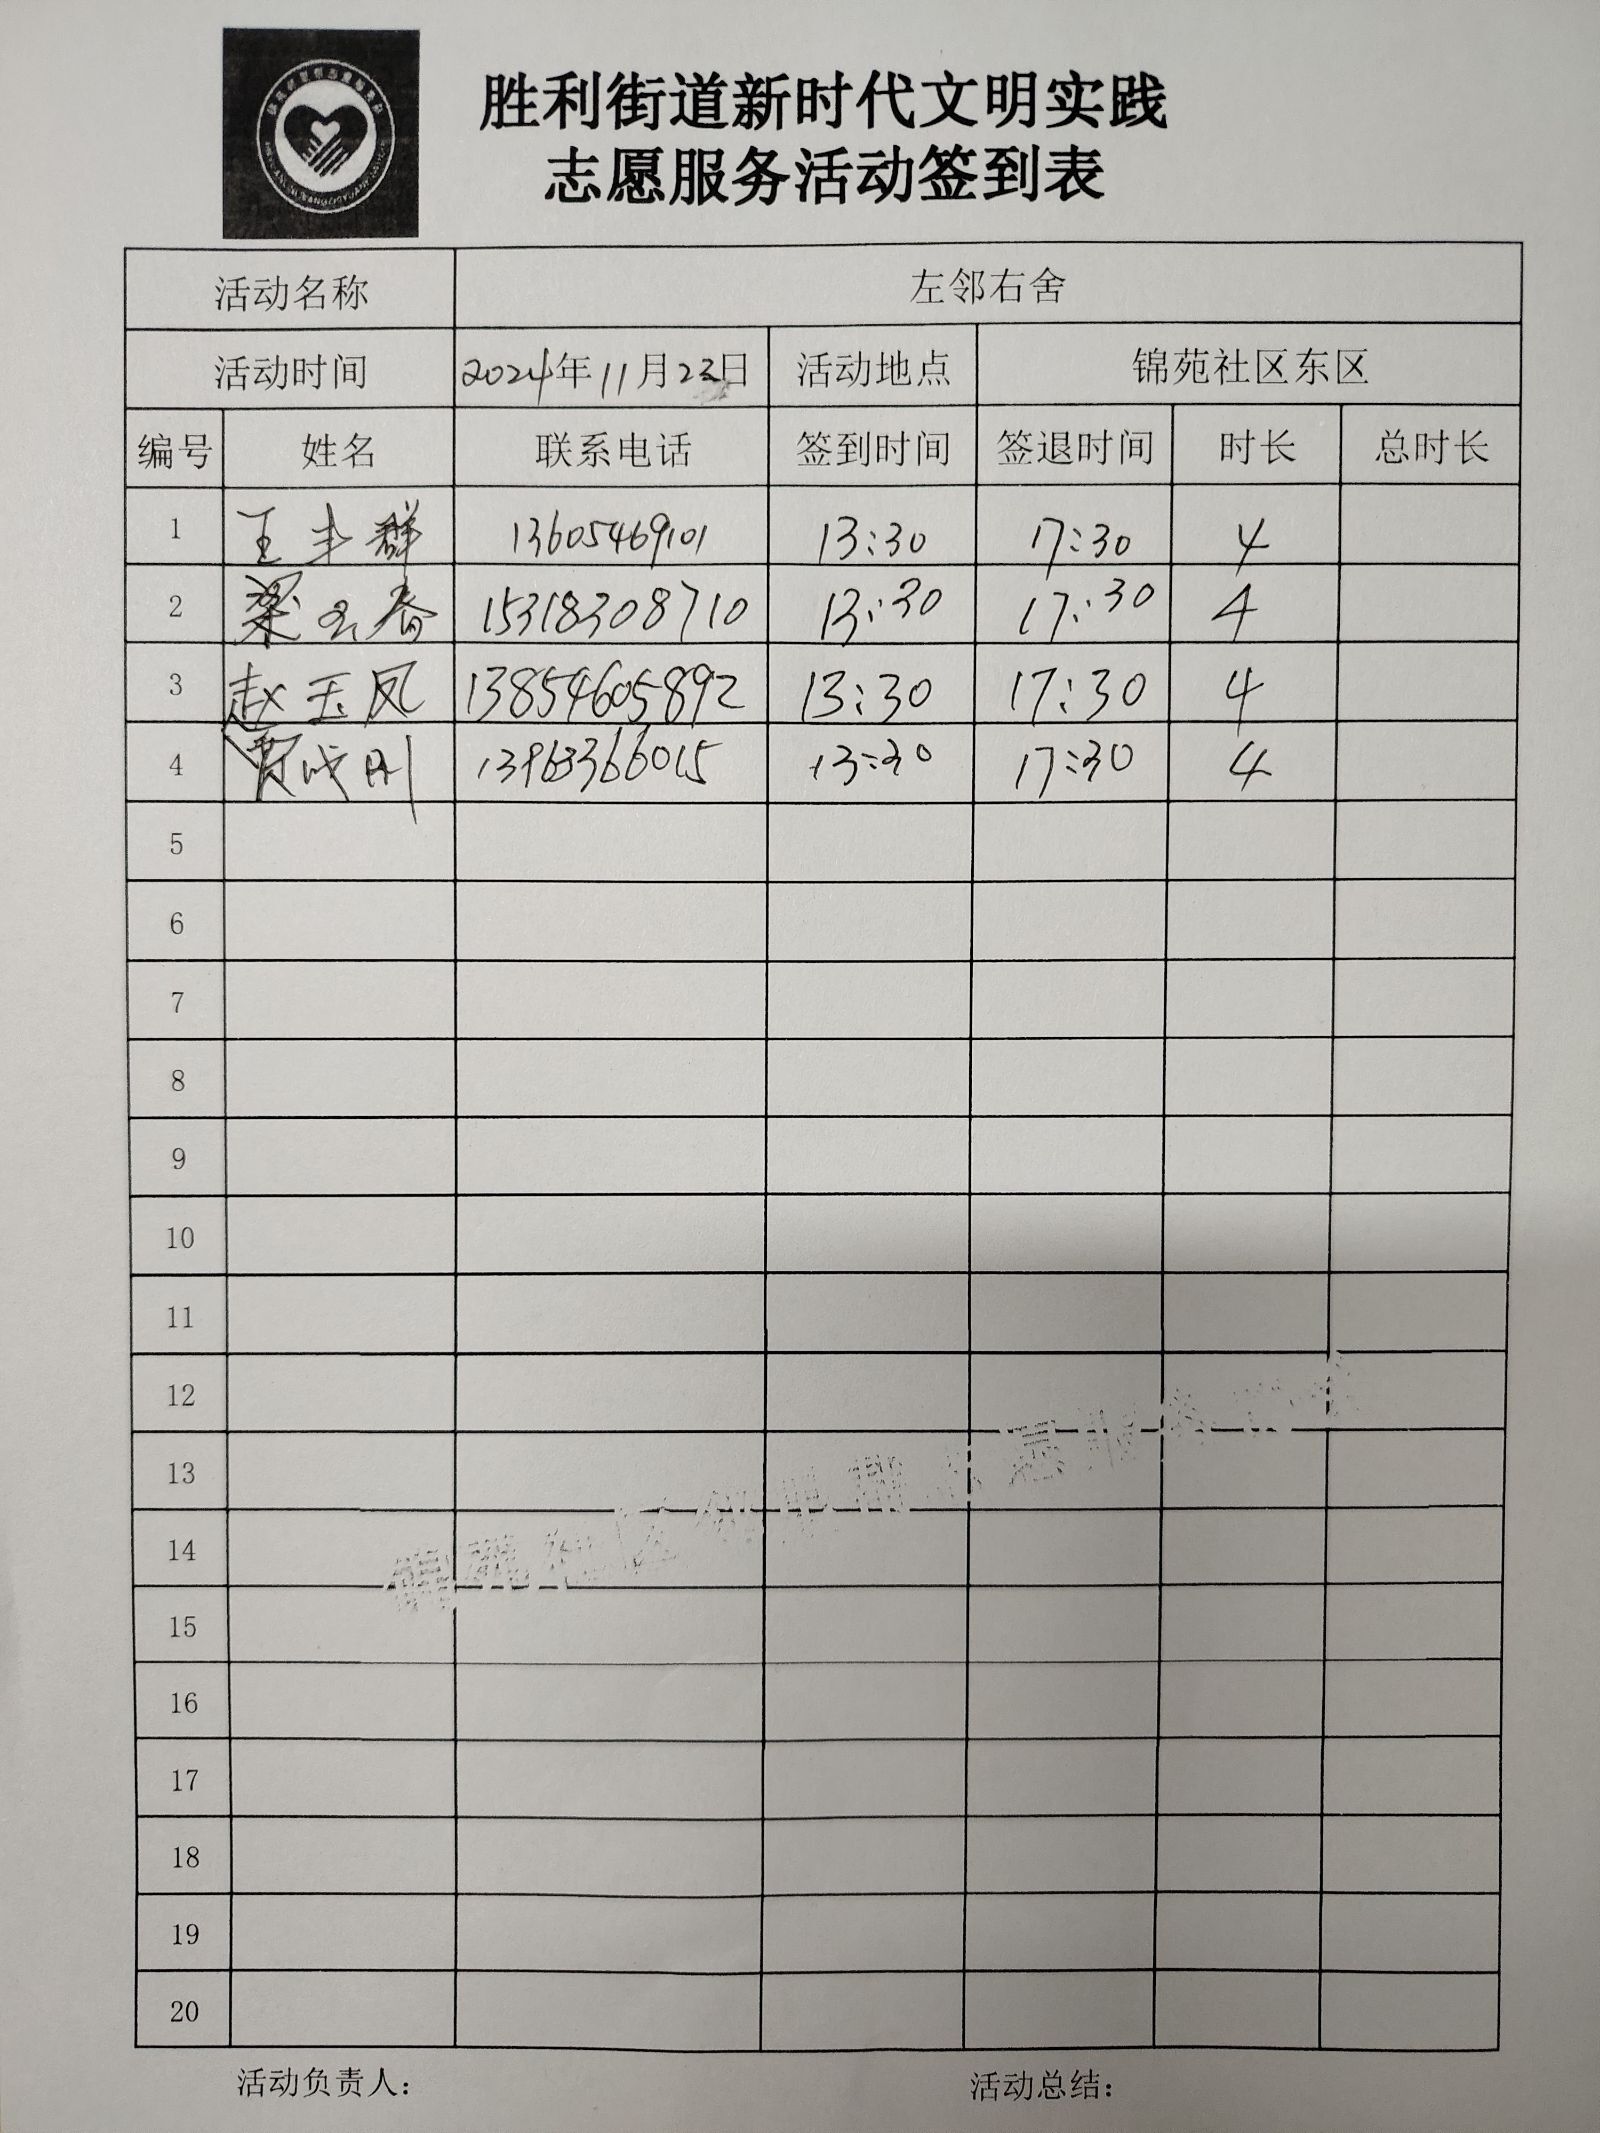 胜利街道新时代文明实践
志愿服务活动签到表
活动名称 左邻右舍
活动时间 2024年11月23日 活动地点 锦苑社区东区
编号 姓名 联系电话 签到时间 签退时间 时长 总时长
1 王丰群 13605469101 13:30 17:30 4
2 梁玉春 15318308710 13:30 17:30 4
3 赵玉凤 13854605892 13:30 17:30 4
4 刚 13963366015 13:30 17:30 4
5
6
7
8
9
10
11
12
13
14
15
16
17
18
19
20
活动负责人: 活动总结: